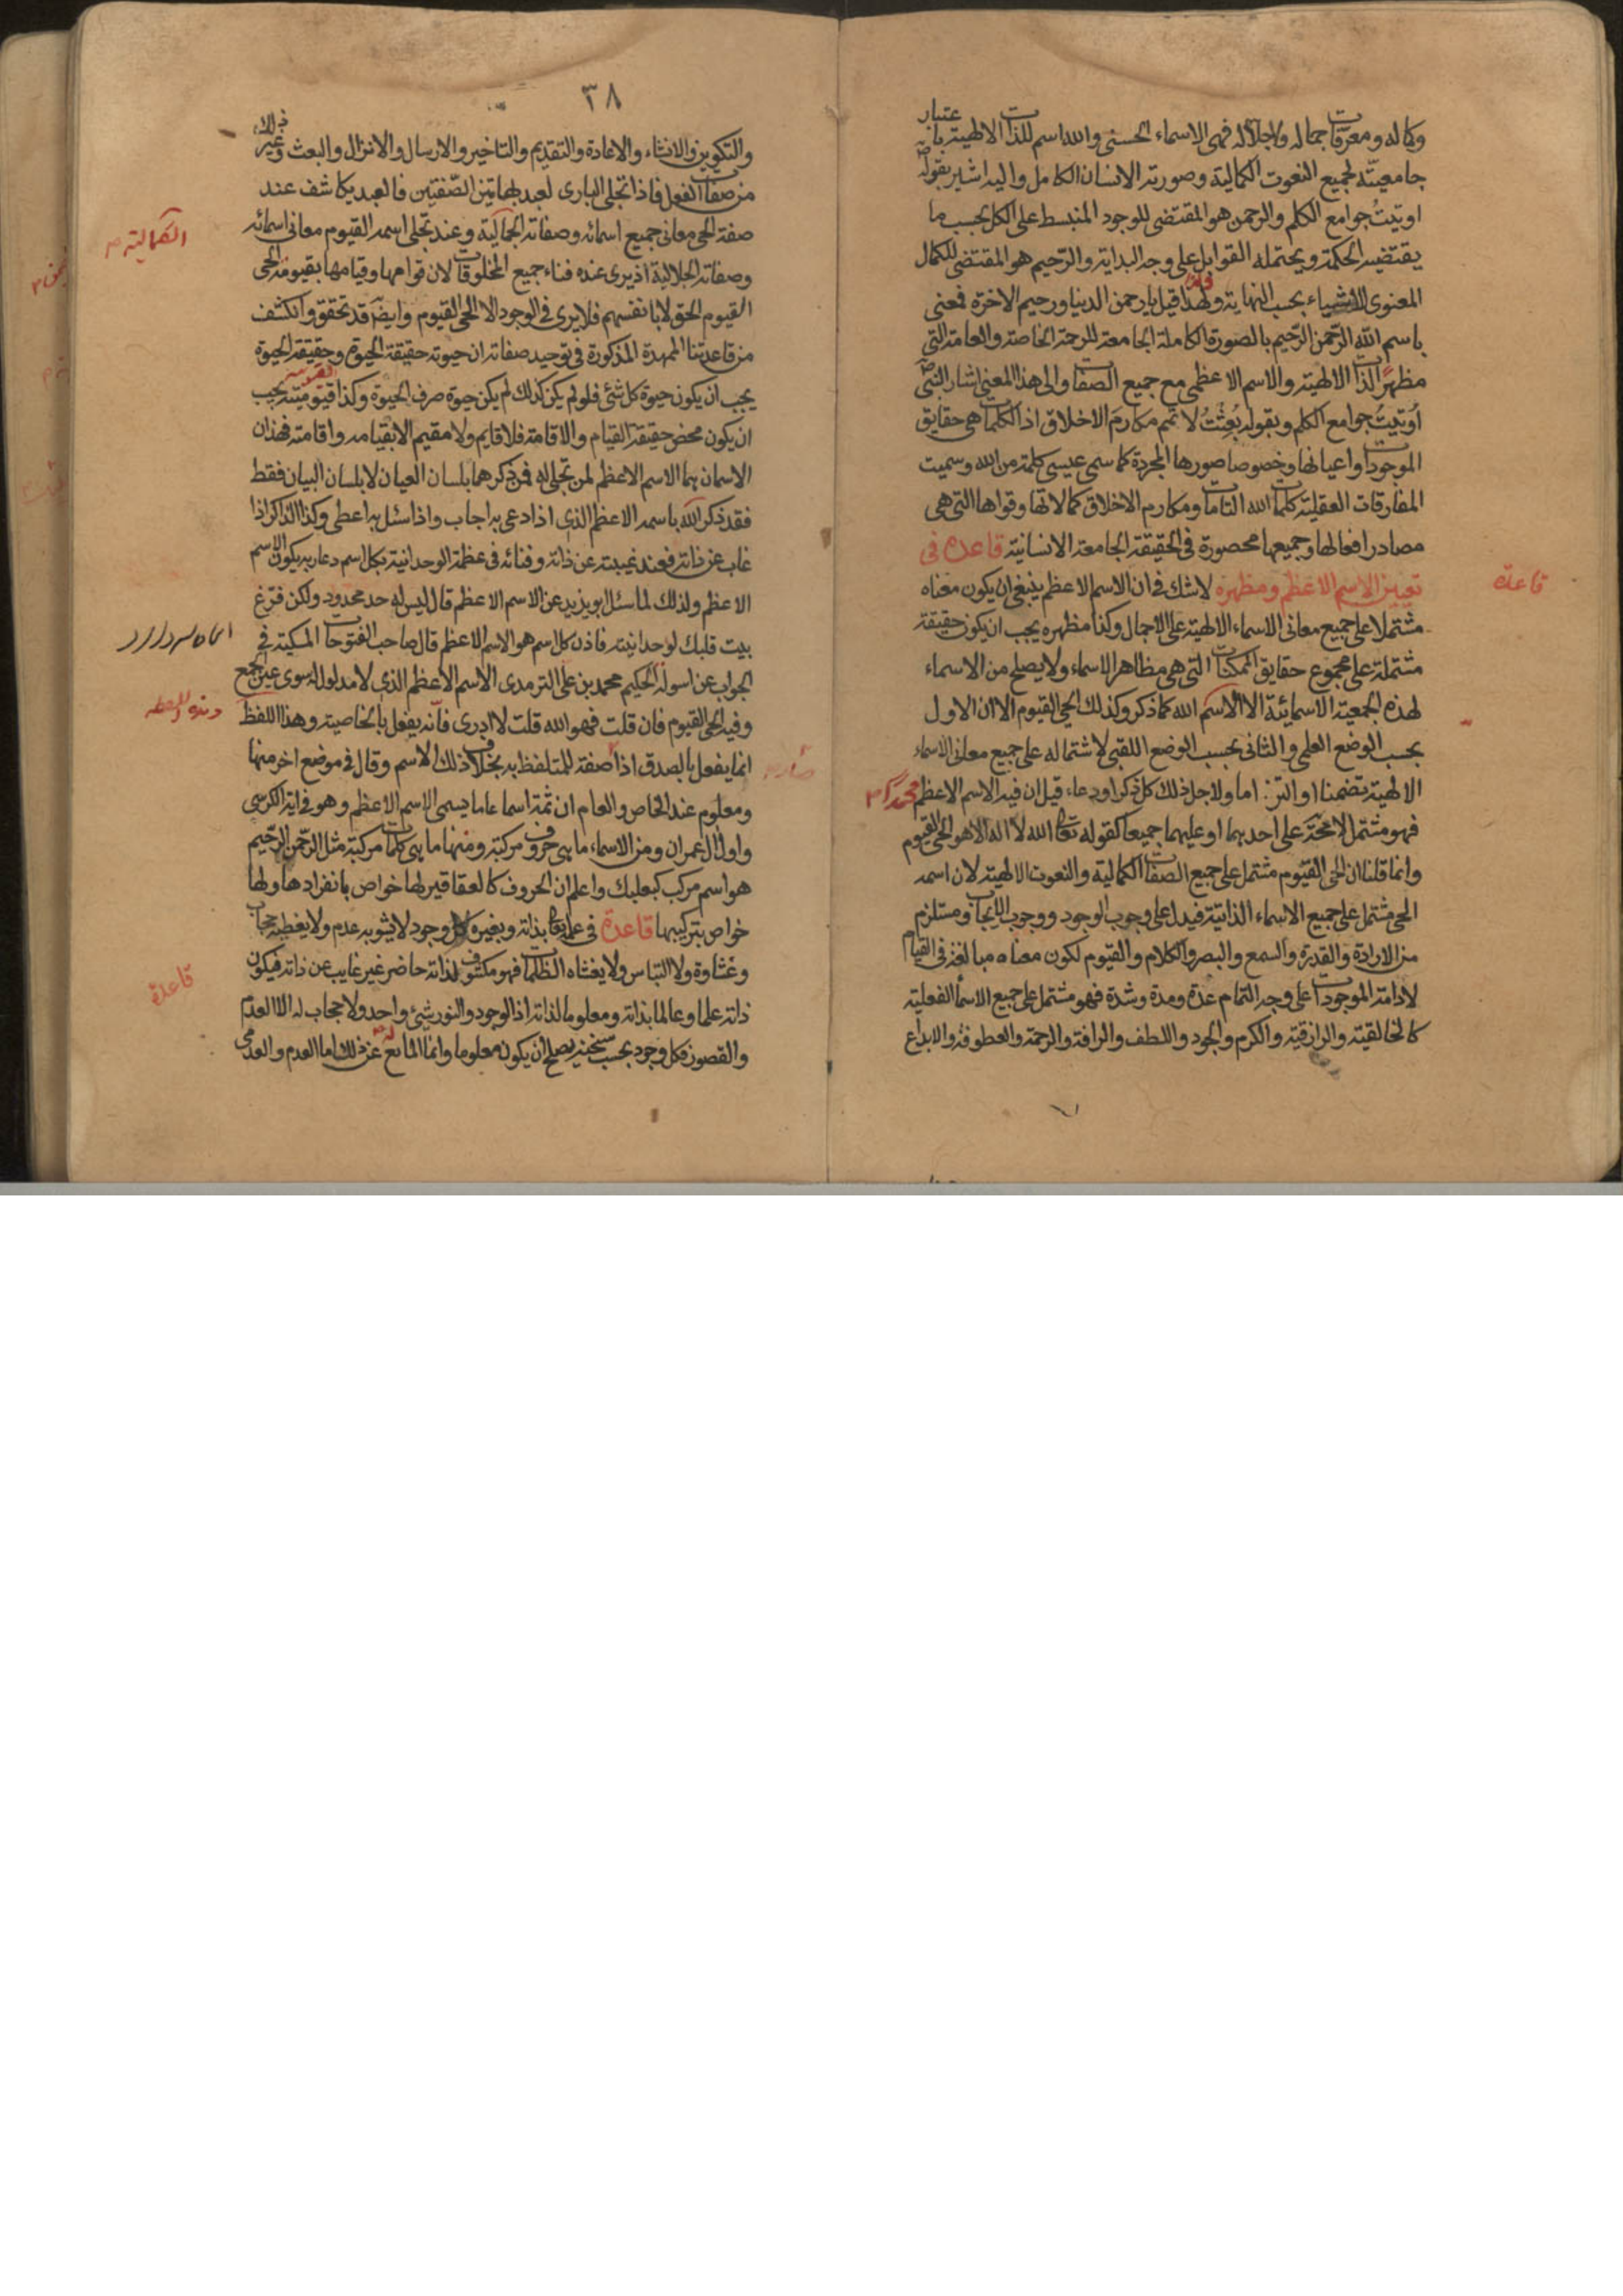 وكماله ومعرفات جماله وجلاله فهى الاسماء الحسنى والله اسم للذات الالهية باعتبار
جامعيته لجميع النعوت الكمالية وصورته الانسان الكامل واليه اشير بقوله
اوتيتُ جوامع الكلم والرحمن هو المقتضى للوجود المنبسط على الكل بحسب ما
يقتضيه الحكمة ويحتمله القوابل على وجه البداية والرحيم هو المقتضى للكمال
المعنوى للأشياء بحسب النهاية ولهذا قيل يا رحمن الدنيا ورحيم الاخرة فمعنى
باسم الله الرّحمن الرّحيم بالصورة الكاملة الجامعة للرحمة الخاصة والعامة التى
مظهر الذات الالهية والاسم الاعظمى مع جميع الصفات والى هذا المعنى اشار النبى ص
اُوتيتُ جوامع الكلم وبقوله بُعِثْتُ لاتمم مكارمَ الاخلاق اذ الكلمات هى حقايق
الموجودات واعيانها وخصوصا صورها المجردة كما سمى عيسى كلمة من الله وسميت
المفارقات العقلية كلمات الله التامات ومكارم الاخلاق كمالاتها وقواها التى هى
مصادر افعالها وجميعها محصورة فى الحقيقة الجامعة الانسانية قاعدة فى
تعيين الاسم الاعظم ومظهره لا شك فى ان الاسم الاعظم ينبغى ان يكون معناه
مشتملا على جميع معانى الاسماء الالهية على الاجمال وكذا مظهره يجب ان يكون حقيقة
مشتملة على مجموع حقايق الممكنات التى هى مظاهر الاسماء ولا يصلح من الاسماء
لهذه الجمعية الاسمائية الا الاسم الله كما ذكر وكذلك الحى القيوم الا ان الاول
بحسب الوضع العلمى والثانى بحسب الوضع اللقبى لاشتماله على جميع معانى الاسماء
الالهية تضمنا او التزاما ولاجل ذلك كل ذكر او دعاء قيل ان فيه الاسم الاعظم
فهو مشتمل لا محة على احدهما او عليهما جميعا كقوله تعا الله لا اله الا هو الحى القيوم
وانما قلنا ان الحى القيوم مشتمل على جميع الصفات الكمالية والنعوت الالهية لان اسمه
الحى مشتمل على جميع الاسماء الذاتية فيدل على وجوب الوجود ووجوب الايجاب ومستلزم
من الارادة والقدرة والسمع والبصر والكلام والقيوم لكون معناه مبالغة فى القيام
لادامة الموجودات على وجه التمام عدة ومدة وشدة فهو مشتمل على جميع الاسماء الفعلية
كالخالقية والرازقية والكرم والجود واللطف والرافة والرحمة والعطوفة والابداع
قاعدة
٣٨
والتكوين والانشاء والاعادة والتقديم والتاخير والارسال والانزال والبعث وغير ذلك
من صفات الفعل فاذا تجلى البارى لعبد بهاتين الصّفتين فالعبد يكاشف عند
صفة الحى معانى جميع اسمائه وصفاته الجمالية وعند تجلى اسمه القيوم معانى اسمائه
وصفاته الجلالية اذ يرى عنده فناء جميع المخلوقات لان قوامها وقيامها بقيومه الحى
القيوم الحق لا بانفسهم فلا يرى فى الوجود الا الحى القيوم وايضا قد تحقق وانكشف
من قاعدتنا الممهدة المذكورة فى توحيد صفاته ان حيوته حقيقة الحيوة وحقيقة الحيوة
يجب ان يكون حيوة كل شئ فلو لم يكن كذلك لم يكن حيوة صرف الحيوة وكذا قيوميته يجب
ان يكون محض حقيقة القيام والاقامة فلا قايم ولا مقيم الا بقيامه واقامته فهذان
الاسمان هما الاسم الاعظم لمن تجلى له فمن ذكرهما بلسان العيان لا بلسان البيان فقط
فقد ذكر الله باسمه الاعظم الذى اذا دعى به اجاب واذا سئل به اعطى وكذا الذاكر اذا
غاب عن ذاته فعند غيبته عن ذاته وفنائه فى عظمة الوحدانية بكل اسم دعا ربه يكون الاسم
الاعظم ولذلك لما سئل ابو يزيد عن الاسم الاعظم قال ليس له حد محدود ولكن فرّغ
بيت قلبك لوحدانيته فاذن كل اسم هو الاسم الاعظم قال صاحب الفتوحات المكية فى
الجواب عن اسولة الحكيم محمد بن على الترمدى الاسم الاعظم الذى لا مدلول له سوى عين الجمع
وفيه الحى القيوم فان قلت فهو الله قلت لا ادرى فانّه يفعل بالخاصية وهذا اللفظ
انما يفعل بالصدق اذا صفة للمتلفظ به بخلاف ذلك الاسم وقال فى موضع اخر منها
ومعلوم عند الخاص والعام ان ثمة اسما عاما يسمى الاسم الاعظم وهو فى اية الكرسى
واول ال عمران ومن الاسماء ما هى حروف مركبة ومنها ما هى كلمات مركبة مثل الرّحمن الرّحيم
هو اسم مركب كبعلبك واعلم ان الحروف كالعقاقير لها خواص بانفرادها ولها
خواص بتركيبها قاعدة فى علمه تعا بذاته وبغيره كل وجود لا يشوبه عدم ولا يغطيه حجاب
وغشاوة ولا التباس ولا يغشاه الظلمات فهو مكشوف لذاته حاضر غير غايب عن ذاته فيكون
ذاته علما وعالما بذاته ومعلوما لذاته اذ الوجود والنور شئ واحد ولا حجاب له الا العدم
والقصور فكل وجود بحسب سنخيته يصلح ان يكون معلوما وانما المانع له عن ذلك اما العدم والعدمى
الكمالية
قاعدة